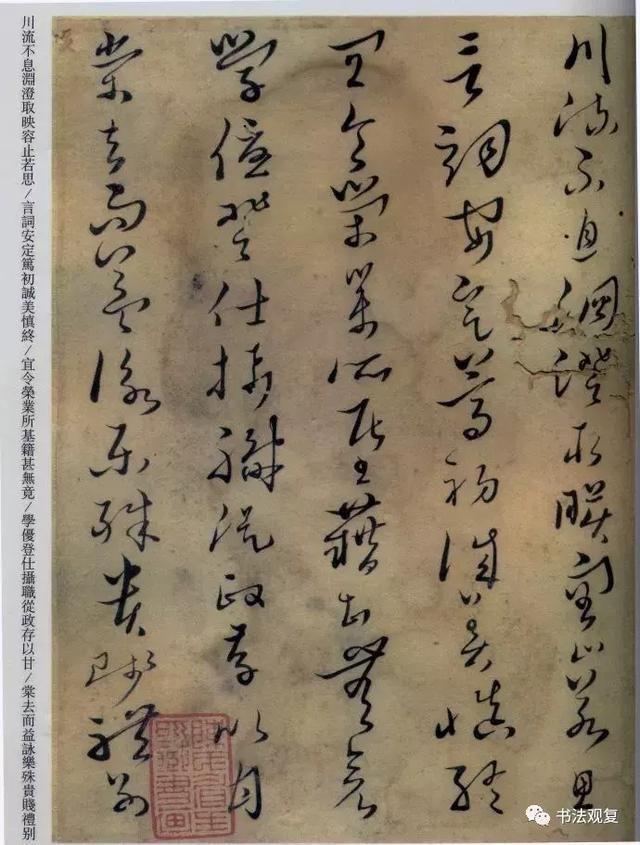 川流不息淵澄取映容止若思
言詞安定篤初誠美慎終
宜令榮業所基籍甚無竟
學優登仕攝職從政存以甘
棠去而益詠樂殊貴賤禮别
川流不息淵澄取映容止若思/言詞安定篤初誠美慎終/宜令榮業所基籍甚無竟/學優登仕攝職從政存以甘/棠去而益詠樂殊貴賤禮别
书法观复